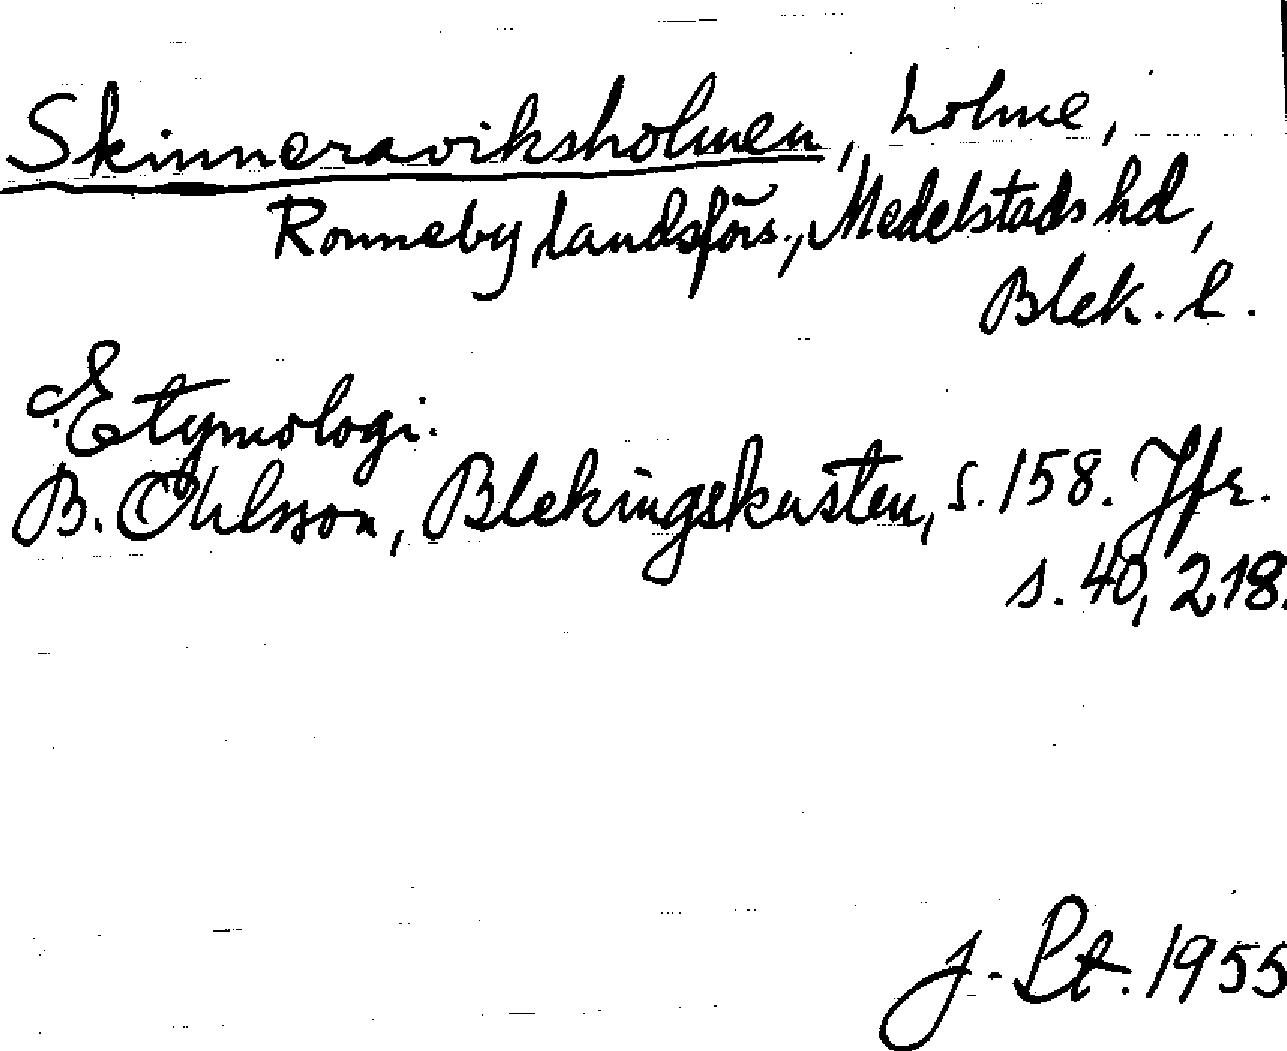 Skinneraviksholmen, holme,
Ronneby landsförs., Medelstads hd,
Blek. l.
Etymologi.
B. Ohlsson, Blekingskusten, s. 158. Jfr.
s. 40, 218.
J. Lt. 1955